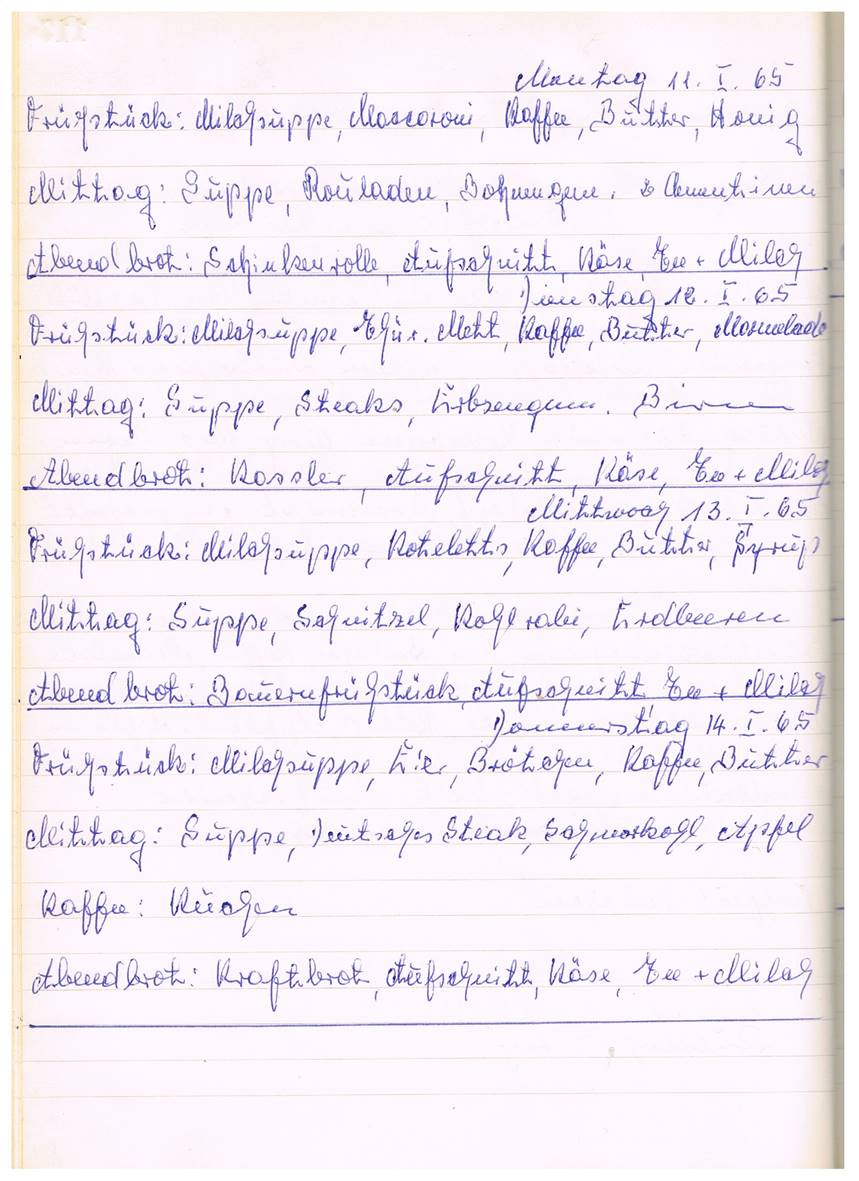 Montag 11. I. 65
Frühstück: Milchsuppe, Maccaroni, Kaffee, Butter, Honig
Mittag: Suppe, Rouladen, Bohnengem. 2 Clementinen
Abendbrot: Schinkenrolle, Aufschnitt, Käse, Tee + Milch
Dienstag 12. I. 65
Frühstück: Milchsuppe, Thür. Mett, Kaffee, Butter, Marmelade
Mittag: Suppe, Steaks, Erbsengem. Birnen
Abendbrot: Kassler, Aufschnitt, Käse, Tee + Milch
Mittwoch 13. I. 65
Frühstück: Milchsuppe, Koteletts, Kaffee, Butter, Syrup
Mittag: Suppe, Schnitzel, Kohlrabi, Erdbeeren
Abendbrot: Bauernfrühstück, Aufschnitt Tee + Milch
Donnerstag 14. I. 65
Frühstück: Milchsuppe, Eier, Brötchen, Kaffee, Butter
Mittag: Suppe, Deutsches Steak, Schmorkohl, Apfel
Kaffee: Kuchen
Abendbrot: Kraftbrot, Aufschnitt, Käse, Tee + Milch